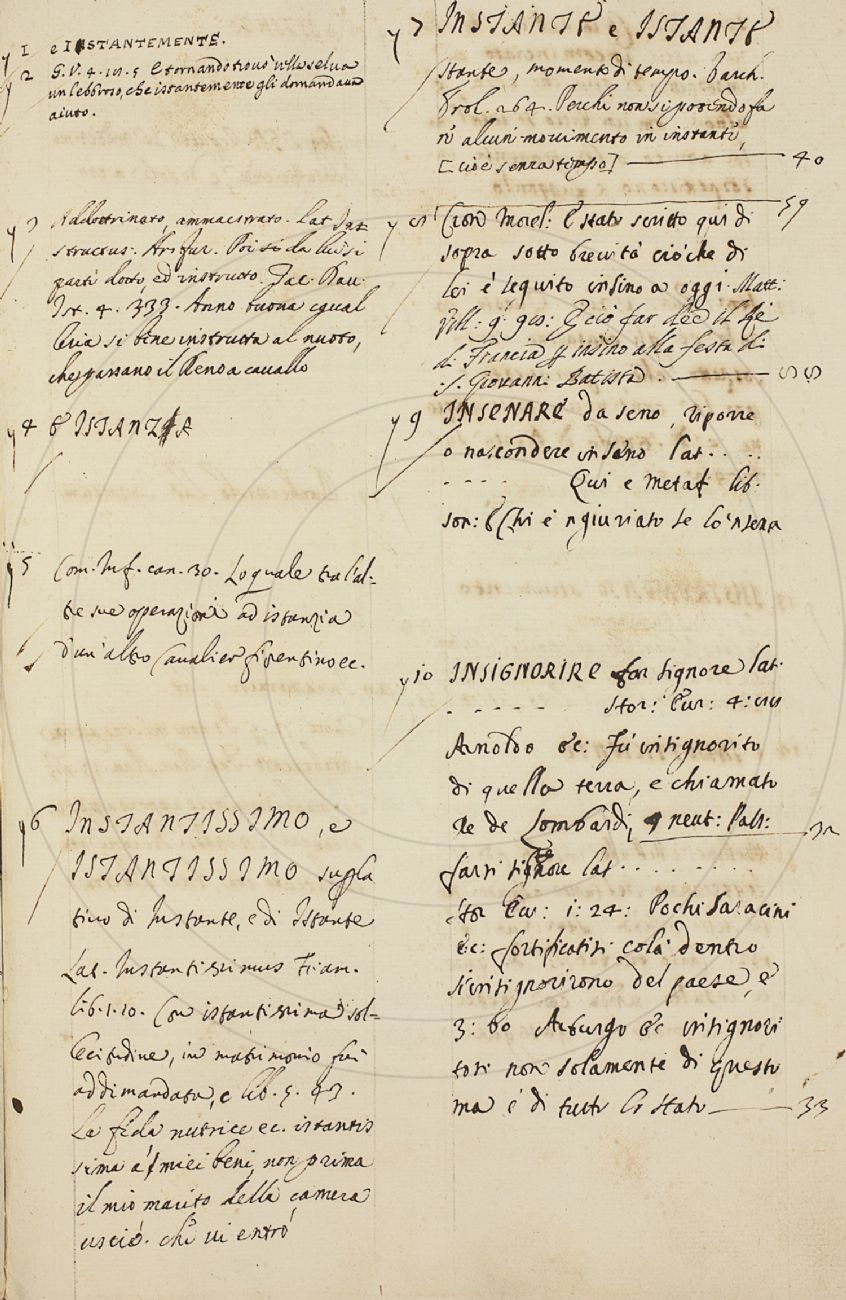 y 1 e ISTANTEMENTE.
y 2 G. V. 4. 19. 5 E tornando trovò nella selva
un lebbroso, che istantemente gli domandava
aiuto.
y 3 Addottrinato, ammaestrato. Lat. In-
structus. Poi si da lui si
parti dotto, ed instructo.
Ist. 4. 333. Anno buona
si bene instrutta al nuoto,
che passano il Reno a cavallo
y 4 E ISTANZIA
y 5 Com. Inf. can. 30. Lo quale tra l'al-
tre sue operazioni ad istanzia
d'un altro Cavalier fiorentino ec.
y 6 INSTANTISSIMO, e
ISTANTISSIMO supla
tivo di Instante, e di Istante
Lat. Instantissimus Fiam.
lib. 1. 10. Con istantissima sol-
lecitudine, in matrimonio fui
addimandata, e lib. 5. 43.
La fida nutrice ec. istantis
sima a' miei beni, non prima
il mio marito della camera
usció. che vi entró
y 7 INSTANTE e ISTANTE
stante, momento di tempo. Varch.
264. Perchè non si potendo fa
r' alcun movimento in instante,
[cioè senza tempo] 40
59
y 8 Cron Morel: E stato scritto qui di
sopra sotto brevità ciò che di
lei è seguito insino a oggi. Matt:
Vill: 9: E ciò far dee il Re
di Francia insino alla festa di
S. Giovanni Batista.
y 9 INSENARE da seno, riporre
o nascondere in seno lat. . . .
- - - - Qui e metaf lib.
son: E Chi è ngiuriato se lo 'nsena
y 10 INSIGNORIRE far signore lat.
- - - - - - stor: Eur: 4:
Arnoldo &c: Fù insignorito
di quella terra, e chiamato
Re de Lombardi, neut: Pass:
farsi signore lat . . . . . . . .
Stor Eur: 1: 24: Pochi Saracini
&c: fortificatisi colà dentro
s'insignorirono del paese, e
3: 60 &c insignori
tosi non solamente di questo
ma é di tutto lo stato 33